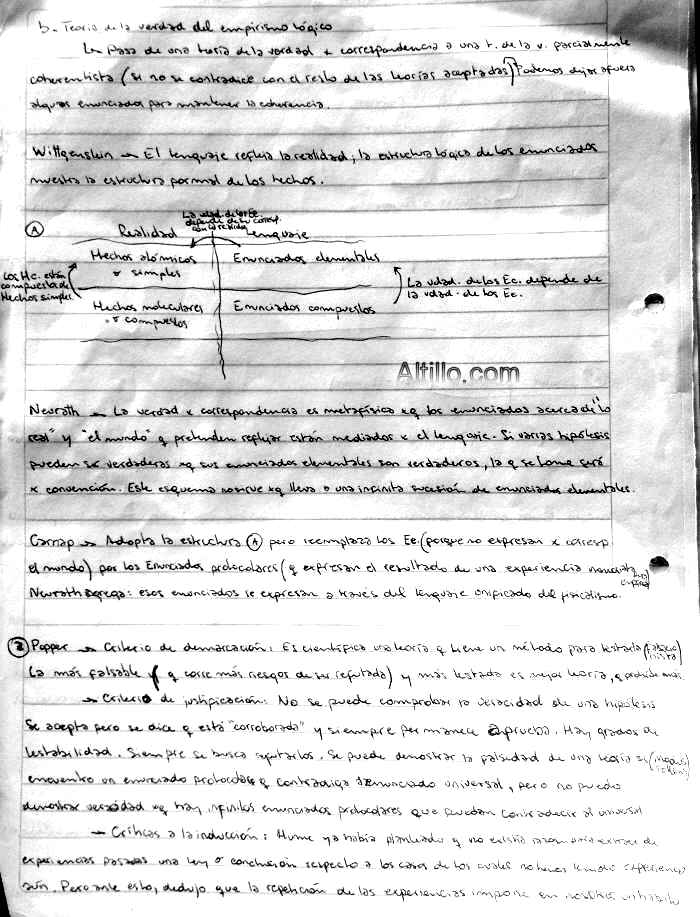 b- Teoría de la verdad del empirismo lógico
Se pasa de una teoría de la verdad x correspondencia a una t. de la v. parcialmente
coherentista (si no se contradice con el resto de las teorías aceptadas) Podemos dejar afuera
algunos enunciados para mantener la coherencia.
Wittgenstein → El lenguaje refleja la realidad; la estructura lógica de los enunciados
muestra la estructura formal de los hechos.
La vdad. de los Ee.
depende de su corresp.
con la realidad
A Realidad Lenguaje
Hechos atómicos Enunciados elementales
o simples
Los Hc. están
compuestos de
Hechos simples
La vdad. de los Ec. depende de
la vdad. de los Ee.
Hechos moleculares Enunciados compuestos
o compuestos
Altillo.com
Neurath → La verdad x correspondencia es metafísica xq los enunciados acerca de "lo
real" y "el mundo" q pretenden reflejar están mediados x el lenguaje. Si varias hipótesis
pueden ser verdaderas xq sus enunciados elementales son verdaderos, la q se toma será
x convención. Este esquema no sirve xq lleva a una infinita sucesión de enunciados elementales.
Carnap → Adopta la estructura A pero reemplaza los Ee. (porque no expresan x corresp.
el mundo) por los Enunciados protocolares (q expresan el resultado de una experiencia
Neurath agrega: esos enunciados se expresan a través del lenguaje unificado del fisicalismo.
2 Popper → Criterio de demarcación: Es científica una teoría q tiene un método para testarla
La más falsable (q corre más riesgos de ser refutada) y más testada es mejor teoría, q
→ Criterio de justificación: No se puede comprobar la veracidad de una hipótesis
Se acepta pero se dice q está "corroborada" y siempre permanece a prueba. Hay grados de
testabilidad. Siempre se busca refutarlos. Se puede demostrar la falsedad de una teoría si
encuentro un enunciado protocolar q contradiga enunciado universal, pero no puedo
demostrar veracidad xq hay infinitos enunciados protocolares que puedan contradecir al universal
→ Críticas a la inducción: Hume ya había planteado q no existía para extraer de
experiencias pasadas una ley o conclusión respecto a los casos de los cuales no hemos tenido experiencia
aún. Pero ante esto, dedujo que la repetición de las experiencias impone en nosotros un hábito